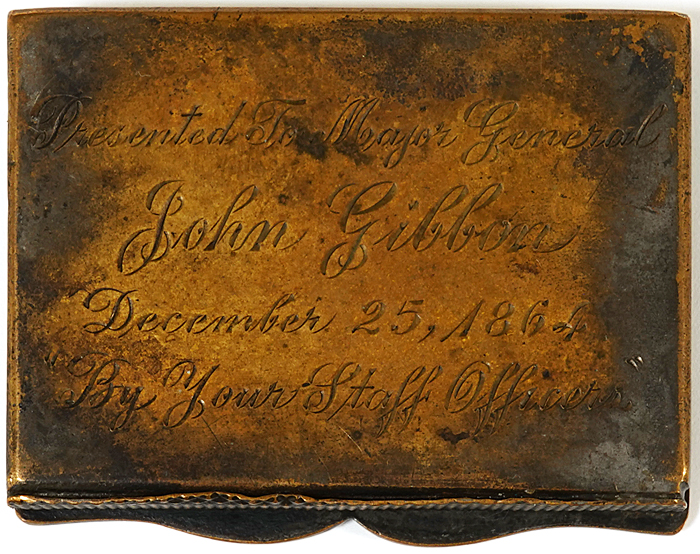 Presented To Major General
John Gibbon
December 25, 1864
"By Your Staff Officers"